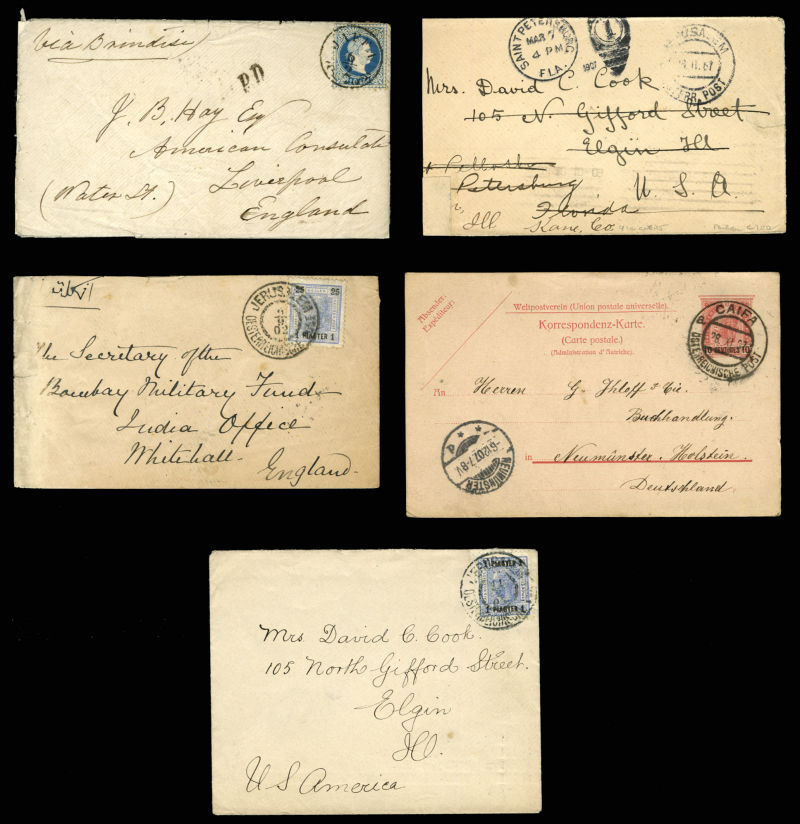 via Brindisi
P.D
J. B. Hay Esq
American Consulate
Liverpool
(Water St.)
England
SAINT PETERSBURG,
MAR 7
4 PM
FLA.
1907
1
Mrs. David C. Cook
105 N. Gifford Street
Elgin Ill
Petersburg,
U. S. A.
Florida
Ill
Kane, Co.
25 25
1 PIASTER 1
JERUSALEM
The Secretary of the
Bombay Military Fund
India Office
Whitehall
England
Absender:
Expéditeur:
Weltpostverein (Union postale universelle).
Korrespondenz-Karte.
(Carte postale.)
(Administration d'Autriche).
CAIFA
ÖSTERREICHISCHE POST
10 CENTIMES 10
An Herren G. Ihloff & Cie.
Buchhandlung.
in Neumünster. Holstein.
Deutschland.
NEUMÜNSTER
1 PIASTER 1
Mrs David C. Cook.
105 North Gifford Street.
Elgin
Ill.
U S America